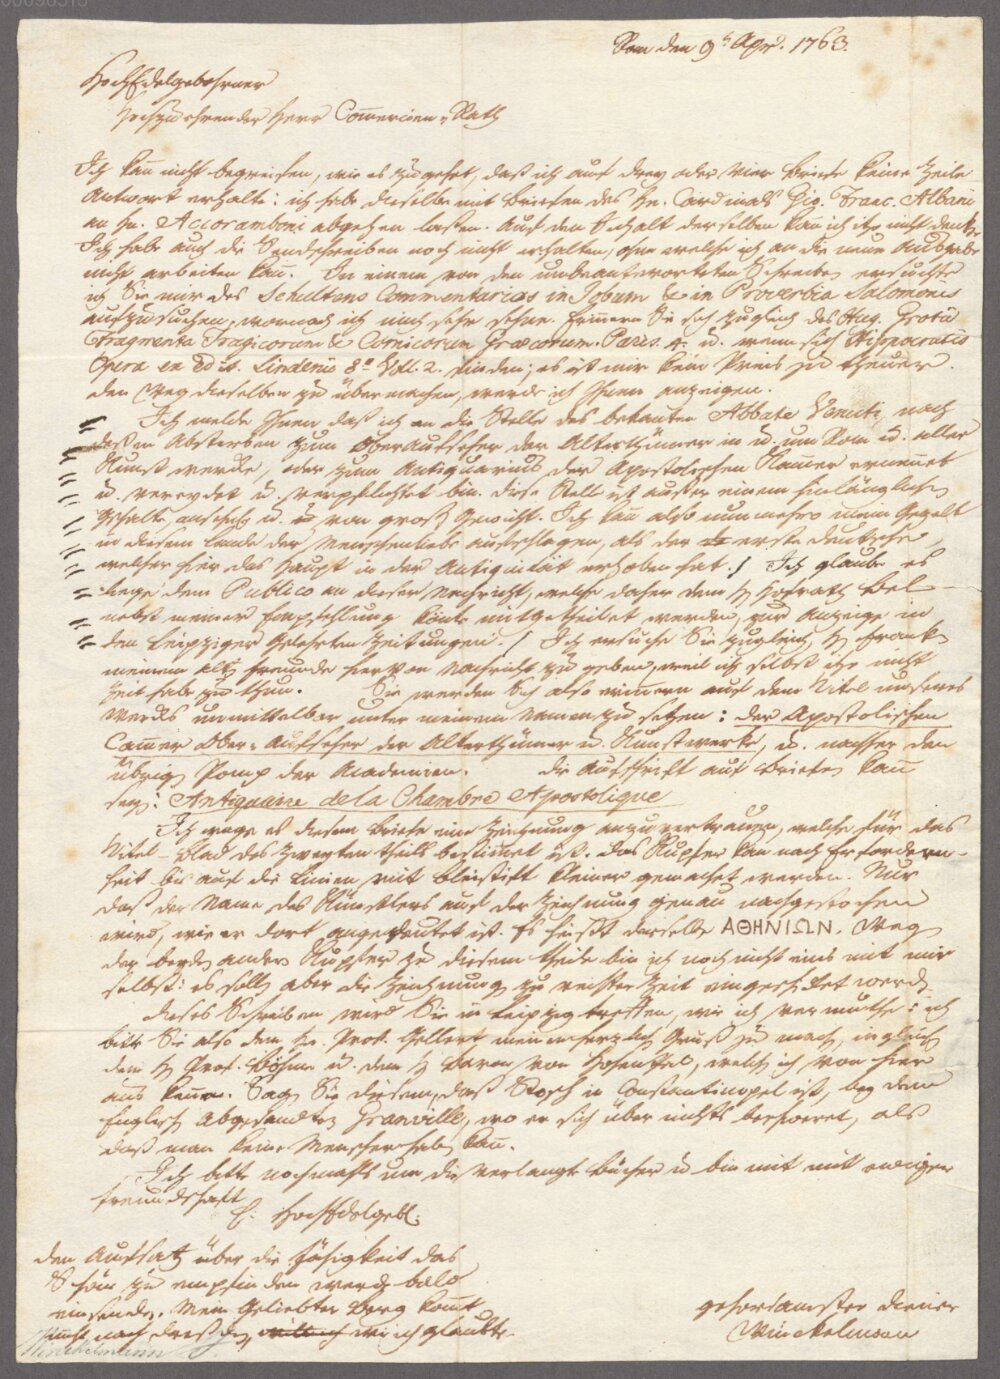 Rom den 9t Apr. 1763.
HochEdelgebohrner
Hochzuehrender Herr Com̅ercien-Rath
Ich kan̅ nicht begreifen, wie es zugehet, daß ich auf drey oder vier Briefe keine Zeile
Antwort erhalte: ich habe dieselbe mit Briefen des Hn. Cardinals Gio. Franc. Albani
an Hn. Accoramboni abgehen laßen. Auf den Inhalt derselben kan̅ ich itzo nicht denken
Ich habe auch die Sendschreiben noch nicht erhalten, ohne welche ich an die neue Ausgabe
nicht arbeiten kan̅. In einem von den unbeantworteten Schreiben ersuchte
ich Sie mir des Schultens Commentarios in Jobum & in Proverbia Salomonis
aufzusuchen, wornach ich mich sehr sehne. Erinnern Sie sich zugleich des Hug. Grotii
Fragmenta Tragicorum & Comicorum Græcorum. Paris. 4. u. wenn sich Hippocratis
Opera ex edit. Lindenii 8° Voll. 2. finden; es ist mir kein Preis zu theuer.
den Weg dieselben zu übermachen, werde ich Ihnen anzeigen.
Ich melde Ihnen daß ich an die Stelle des bekanten Abbate Venuti, nach
deßen Absterben zum Oberaufseher der Alterthümer in u. um Rom u. aller
Kunst werke, oder zum Antiquarius der Apostolischen Kam̅er ernennet
u. vereydet u. verpflichtet bin. diese Stelle ist außer einem hinlänglichen
Gehalte ansehnl. u. von groß Gewicht. Ich kan̅ also nunmehro mein Gezelt
in diesem Lande der Menschenliebe aufschlagen, als der erste Deutsche,
welcher hier das Haupt in der Antiquität erhoben hat. / Ich glaube es
liege dem Publico an dieser Nachricht, welche daher dem H Hofrath Bel
nebst meiner Empfehlung könte mitgetheilet werden, zur Anzeige in
den Leipziger Gelehrten Zeitungen. / Ich ersuche Sie zugleich, H Franken
meinem alten Freunde hiervon Nachricht zu geben, weil ich selbst itzo nicht
Zeit habe zu thun. Sie werden Sich also erinnern auf dem Titel unseres
Werks unmittelbar unter meinem Namen zu setzen: der Apostolischen
Cam̅er Ober-Aufseher der Alterthümer u. Kunstwerke, u. nachher den
übrigen Pomp der Academien. die Aufschrift auf Briefen kan̅
seyn: Antiquaire de la Chambre Apostolique
Ich wage es diesem Briefe eine Zeichnung anzuvertrauen, welche für das
Titel-Blad des zweyten Theils bestim̅et ist. das Kupfer kan nach Erfordern-
heit bis auf die Linien mit Bleistift kleiner gemachet werden. Nur
daß der Name des Künstlers auf der Zeichnung genau nachgestochen
wird, wie er dort angedeutet ist. Es heißt derselbe ΑΘΗΝΙΩΝ. Wegen
der beyden andern Kupfer zu diesem Theile bin ich noch nicht eins mit mir
selbst: es soll aber die Zeichnung zu rechter Zeit eingesendet werden.
dieses Schreiben wird Sie in Leipzig treffen, wie ich vermuthe: ich
bitte Sie also dem Hn. Prof. Gellert meinen herzlichen Gruß zu machen, ingleichen
dem H Prof. Böhme u. dem H Baron von Hohenthal, welchen ich von hier
aus kenne. Sagen Sie diesem, daß Stosch in Constantinopel ist, bey dem
Englischen Abgesandten Granville, wo er sich über nichts beschweret, als
daß man keine Menschen sehen kan̅.
Ich bitte nochmals um die verlangten Bücher u bin mit mit ewiger
Freundschaft
E. HochEdelgeb.
den Aufsatz über die Fähigkeit das
Schöne zu empfinden werde bald
einsenden. Mein Geliebter Berg kom̅t
nicht nach Dreßden wie ich glaubte.
gehorsamster Diener
Winckelmann
Winckelmann